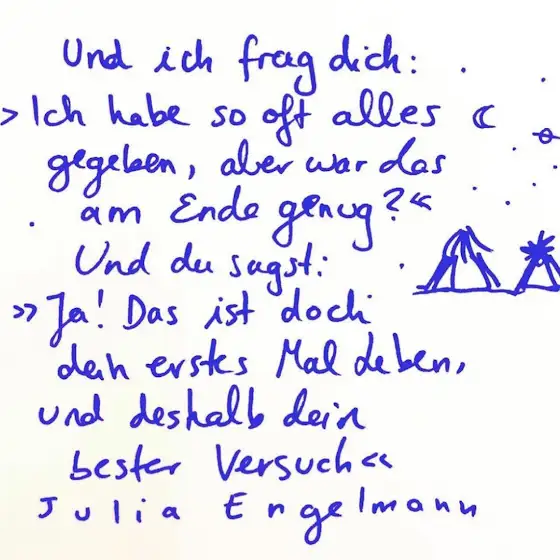 Und ich frag dich:
>Ich habe so oft alles
gegeben, aber war das
am Ende genug?«
Und du sagst:
»Ja! Das ist doch
dein erstes Mal Leben,
und deshalb dein
bester Versuch«
Julia Engelmann